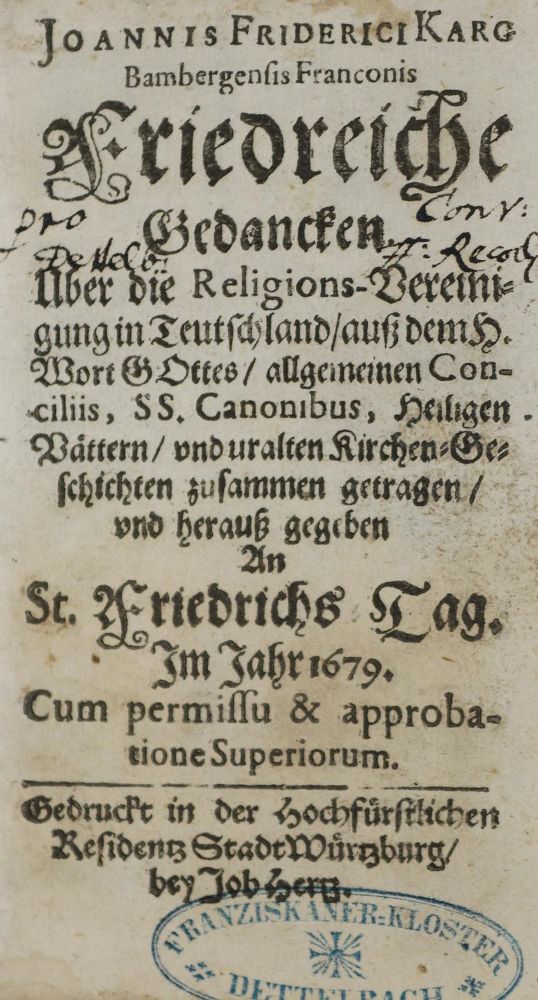 JOANNIS FRIDERICI KARG
Bambergensis Franconis
Friedreiche
pro
Gedancken
Conv:
Dettelb:
ff: Recoll
Uber die Religions-Vereini-
gung in Teutschland/ auß dem H.
Wort GOttes/ allgemeinen Con-
ciliis, SS. Canonibus, Heiligen
Vättern/ vnd uralten Kirchen-Ge-
schichten zusammen getragen/
vnd herauß gegeben
An
St. Friedrichs Tag.
Im Jahr 1679.
Cum permissu & approba-
tione Superiorum.
Gedruckt in der Hochfürstlichen
Residentz Stadt Würtzburg/
bey Job Hertz.
FRANZISKANER-KLOSTER
DETTELBACH